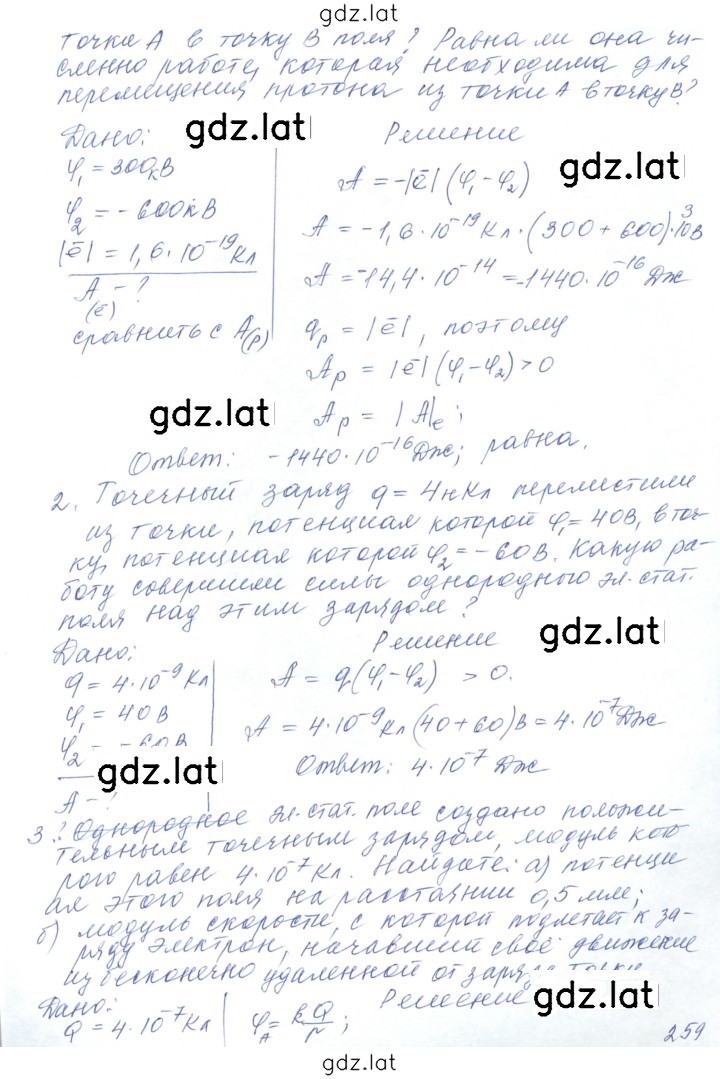 gdz.lat
точки А в точку В поля? Равна ли она чи-
сленно работе, которая необходима для
перемещения протона из точки А в точку В?
Дано: gdz.lat Решение gdz.lat
φ₁ = 300кВ
φ₂ = -600кВ
|ē| = 1,6·10⁻¹⁹Кл
A(ē) - ?
сравнить с A(р)
A = -|ē|(φ₁-φ₂)
A = -1,6·10⁻¹⁹Кл·(300+600)·10³В
A = -14,4·10⁻¹⁴ = -1440·10⁻¹⁶Дж
qₚ = |ē|, поэтому
Aₚ = |ē|(φ₁-φ₂)>0
gdz.lat
Aₚ = |A|ₑ;
Ответ: -1440·10⁻¹⁶Дж; равна.
2. Точечный заряд q = 4нКл переместили
из точки, потенциал которой φ₁=40В, в точ-
ку, потенциал которой φ₂=-60В. Какую ра-
боту совершили силы однородного эл.стат.
поля над этим зарядом?
gdz.lat
Дано: Решение
q = 4·10⁻⁹Кл
φ₁ = 40В
φ₂ = -60В
gdz.lat
A - ?
A = q(φ₁-φ₂) > 0.
A = 4·10⁻⁹Кл(40+60)В = 4·10⁻⁷Дж
Ответ: 4·10⁻⁷Дж
3. Однородное эл.стат. поле создано положи-
тельным точечным зарядом, модуль кото
рого равен 4·10⁻⁷Кл. Найдите: а) потенци
ал этого поля на расстоянии 0,5мм;
б) модуль скорости, с которой подлетает к за-
ряду электрон, начавший своё движение
из бесконечно удаленной от заряда точки
Дано: Решение gdz.lat
Q = 4·10⁻⁷Кл
φ_A = kQ/r;
259
gdz.lat